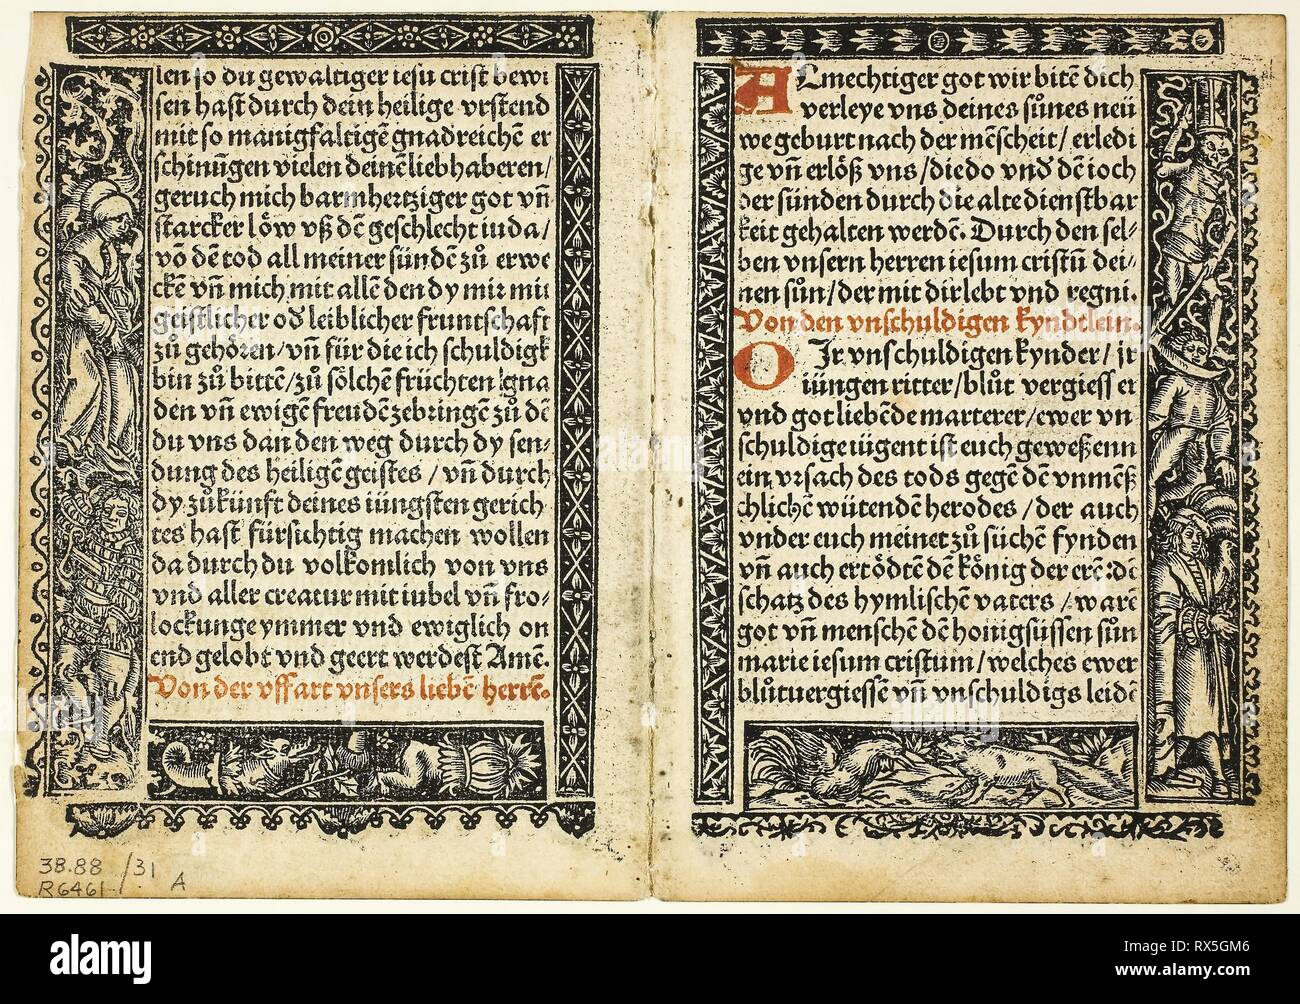 len so du gewaltiger iesu crist bewi
sen hast durch dein heilige vrstend
mit so manigfaltigē gnadreichē er
schinūgen vielen deinē liebhaberen/
geruch mich barmhertziger got vn̄
starcker lo͏̈w vß dē geschlecht iuda/
vō dē tod all meiner sündē zů erwe
ckē vn̄ mich mit allē den dy mir mit
geistlicher od leiblicher fruntschaft
zů gehören/vn̄ für die ich schuldigk
bin zů bittē/zů sölchē früchten gna
den vn̄ ewigē freudē zebringē zů dē
du vns dan den weg durch dy sen-
dung des heiligē geistes/vn̄ durch
dy zůkünft deines iüngsten gerich
tes hast fürsichtig machen wollen
da durch du volkomlich von vns
vnd aller creatur mit iubel vn̄ fro-
lockung eymmer vnd ewiglich on
end gelobt vnd geert werdest Amē.
Von der vffart vnsers liebē herrē.
38.88 /31 A
R6461
ALmechtiger got wir bitē dich
verleye vns deines sůnes neü
we geburt nach der mēscheit/erledi
ge vn̄ erlöß vns/die do vnd dē ioch
der sünden durch die alte dienstbar
keit gehalten werdē. Durch den sel-
ben vnsern herren iesum cristū dei-
nen sůn/der mit dir lebt vnd regni.
Von den vnschuldigen kyndtlein.
O Ir vnschuldigen kynder/ir
iüngen ritter/blůt vergiess er
vnd got liebēde marterer/ewer vn
schuldige iügent ist euch geweßenn
ein vrsach des tods gegē dē vnmēß
chlichē wütendē herodes/der auch
vnder euch meinet zů süchē fynden
vn̄ auch ertödtē dē könig der erē: dē
schatz des hymlischē vaters/warē
got vn̄ menschē dē honigsüssen sůn
marie iesum cristum/welches ewer
blůtuergiessē vn̄ vnschuldigs leidē
alamy
Image ID: RX5GM6
www.alamy.com